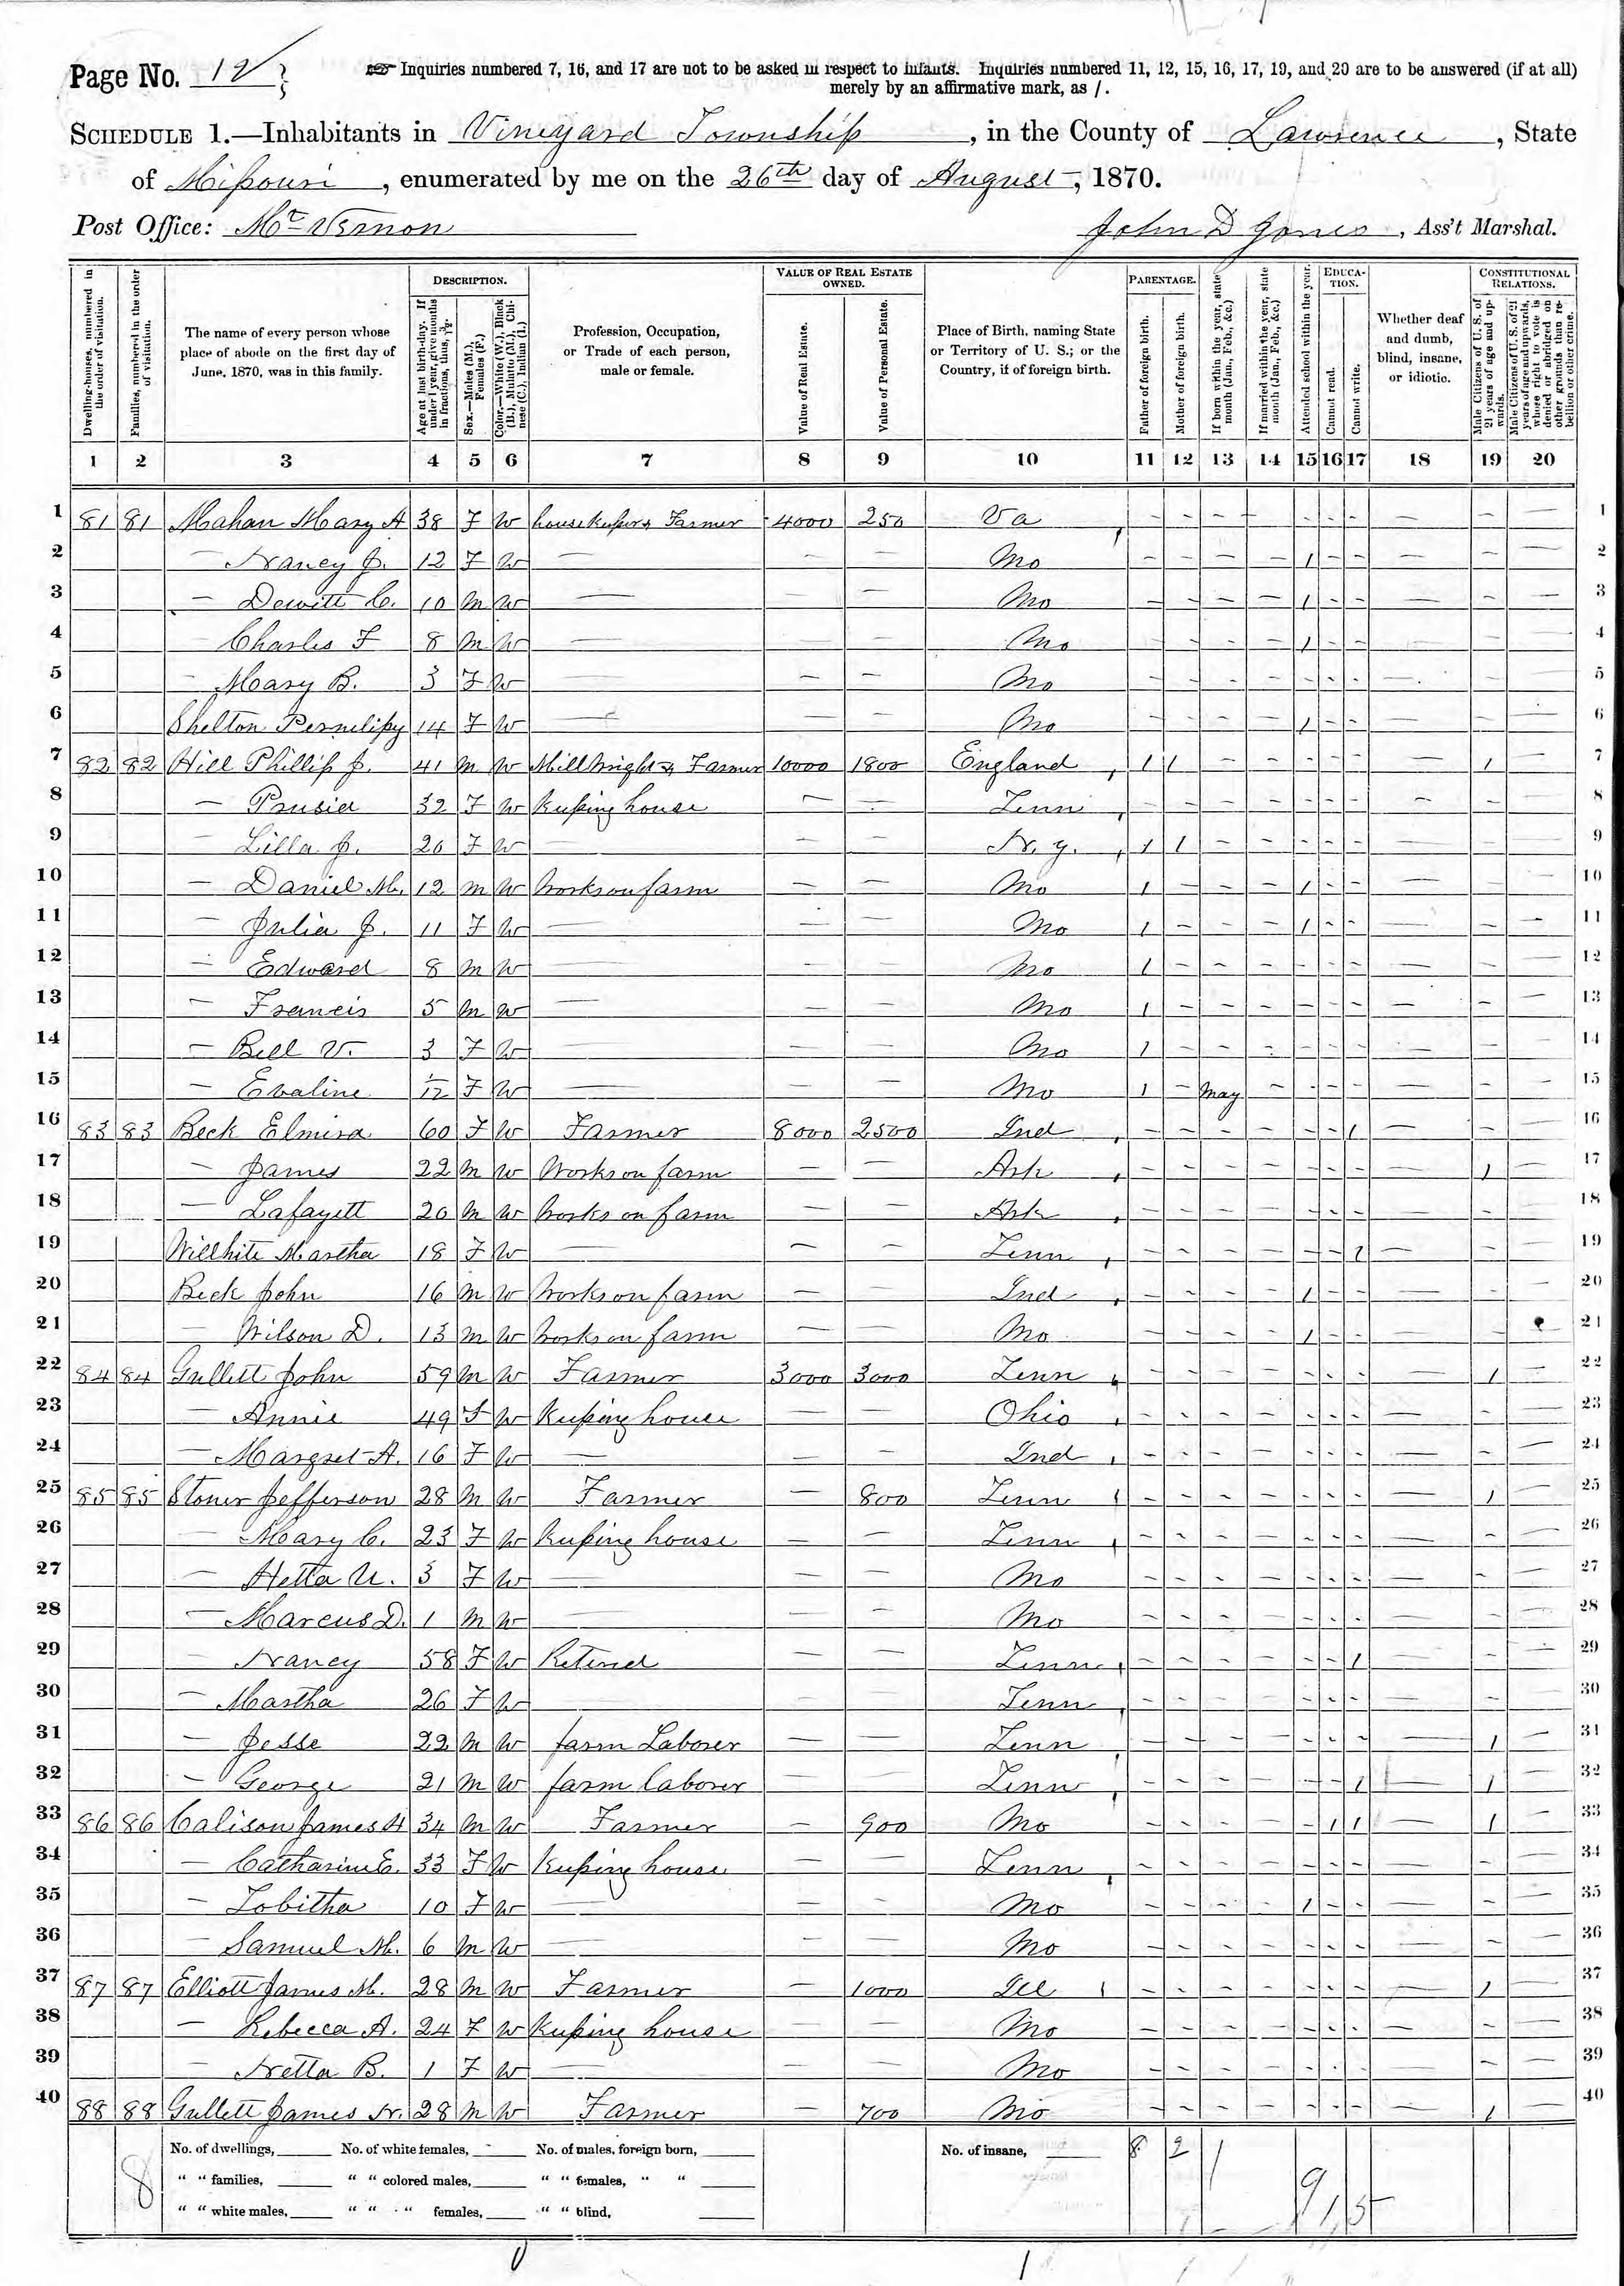 Page No. 12
☞ Inquiries numbered 7, 16, and 17 are not to be asked in respect to infants. Inquiries numbered 11, 12, 15, 16, 17, 19, and 20 are to be answered (if at all)
merely by an affirmative mark, as /.
SCHEDULE 1.—Inhabitants in Vineyard Township, in the County of Lawrence, State
of Missouri, enumerated by me on the 26th day of August, 1870.
Post Office: Mt Vernon John D Jones, Ass't Marshal.
Dwelling-houses, numbered in the order of visitation.
Families, numbered in the order of visitation.
The name of every person whose place of abode on the first day of June, 1870, was in this family.
DESCRIPTION.
Age at last birth-day. If under 1 year, give months in fractions, thus, 3/12.
Sex.—Males (M.), Females (F.)
Color.—White (W.), Black (B.), Mulatto (M.), Chinese (C.), Indian (I.)
Profession, Occupation, or Trade of each person, male or female.
VALUE OF REAL ESTATE OWNED.
Value of Real Estate.
Value of Personal Estate.
Place of Birth, naming State or Territory of U. S.; or the Country, if of foreign birth.
PARENTAGE.
Father of foreign birth.
Mother of foreign birth.
If born within the year, state month (Jan., Feb., &c.)
If married within the year, state month (Jan., Feb., &c.)
Attended school within the year.
EDUCATION.
Cannot read.
Cannot write.
Whether deaf and dumb, blind, insane, or idiotic.
CONSTITUTIONAL RELATIONS.
Male Citizens of U. S. of 21 years of age and upwards.
Male Citizens of U. S. of 21 years of age and upwards, whose right to vote is denied or abridged on other grounds than rebellion or other crime.
1 2 3 4 5 6 7 8 9 10 11 12 13 14 15 16 17 18 19 20
1 81 81 Mahan Mary A 38 F W housekeeper & Farmer 4000 250 Va — — — — — — — — — — 1
2 — Nancy J. 12 F W — — — Mo — — — — 1 — — — — — 2
3 — Dewitt C. 10 M W — — — Mo — — — — 1 — — — — — 3
4 — Charles F 8 M W — — — Mo — — — — 1 — — — — — 4
5 — Mary B. 3 F W — — — Mo — — — — — — — — — — 5
6 Shelton 14 F W — — — Mo — — — — 1 — — — — — 6
7 82 82 Hill Phillip J. 41 M W Millwright & Farmer 10000 1800 England 1 1 — — — — — — 1 — 7
8 — Prusia 32 F W Keeping house — — Tenn — — — — — — — — — — 8
9 — Lilla J. 20 F W — — — N. Y. 1 1 — — — — — — — — 9
10 — Daniel M. 12 M W Works on farm — — Mo 1 — — — 1 — — — — — 10
11 — Julia J. 11 F W — — — Mo 1 — — — 1 — — — — — 11
12 — Edward 8 M W — — — Mo 1 — — — — — — — — — 12
13 — Francis 5 M W — — — Mo 1 — — — — — — — — — 13
14 — Bell V. 3 F W — — — Mo 1 — — — — — — — — — 14
15 — Evaline 1/12 F W — — — Mo 1 — May — — — — — — — 15
16 83 83 Beck Elmira 60 F W Farmer 8000 2500 Ind — — — — — — 1 — — — 16
17 — James 22 M W Works on farm — — Ark — — — — — — — — 1 — 17
18 — Lafayett 20 M W Works on farm — — Ark — — — — — — — — — — 18
19 Willhite Martha 18 F W — — — Tenn — — — — — — 1 — — — 19
20 Beck John 16 M W Works on farm — — Ind — — — — 1 — — — — — 20
21 — Wilson D. 13 M W Works on farm — — Mo — — — — 1 — — — — 21
22 84 84 Gullett John 59 M W Farmer 3000 3000 Tenn — — — — — — — — 1 — 22
23 — Annie 49 F W Keeping house — — Ohio — — — — — — — — — — 23
24 — Margret A. 16 F W — — — Ind — — — — — — — — — — 24
25 85 85 Stoner Jefferson 28 M W Farmer — 800 Tenn — — — — — — — — 1 — 25
26 — Mary C. 23 F W Keeping house — — Tenn — — — — — — — — — — 26
27 — Hetta U. 3 F W — — — Mo — — — — — — — — — — 27
28 — Marcus D. 1 M W — — — Mo — — — — — — — — — — 28
29 — Nancy 58 F W Retired — — Tenn — — — — — — 1 — — — 29
30 — Martha 26 F W — — Tenn — — — — — — — — — — 30
31 — Jesse 22 M W farm Laborer — — Tenn — — — — — — — — 1 — 31
32 — George 21 M W farm laborer — — Tenn — — — — — — 1 — 1 — 32
33 86 86 Calison James H 34 M W Farmer — 900 Mo — — — — — 1 1 — 1 — 33
34 — Catharine E. 33 F W Keeping house — — Tenn — — — — — — — — — — 34
35 — Tobitha 10 F W — — — Mo — — — — 1 — — — — — 35
36 — Samuel M. 6 M W — — — Mo — — — — — — — — — — 36
37 87 87 Elliott James M. 28 M W Farmer — 1000 Ill — — — — — — — — 1 — 37
38 — Rebecca A. 24 F W Keeping house — — Mo — — — — — — — — — — 38
39 — Netta B. 1 F W — — — Mo — — — — — — — — — — 39
40 88 88 Gullett James N. 28 M W Farmer — 700 Mo — — — — — — — — 1 — 40
No. of dwellings, No. of white females, No. of males, foreign born, No. of insane, 8 2 1
8 " " families, " " colored males, " " females, " " 9 1 5
" " white males, " " " females, " " blind,